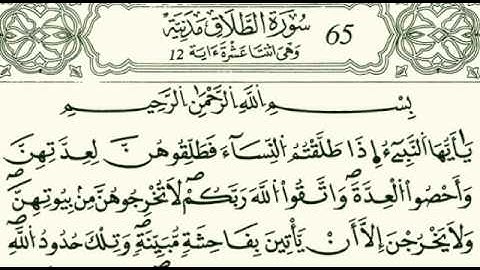 سُورَةُ الطَّلَاقِ مَدَنِيَّة 65
وَهْىَ اثْنَتَا عَشْرَةَ ءَايَة 12
بِسْمِ اللَّهِ الرَّحْمَٰنِ الرَّحِيمِ
يَٰأَيُّهَا النَّبِيُٓءُ اِذَا طَلَّقْتُمُ النِّسَآءَ فَطَلِّقُوهُنَّ لِعِدَّتِهِنَّ
وَأَحْصُوا الْعِدَّةَ وَاتَّقُوا اللَّهَ رَبَّكُمْ لَا تُخْرِجُوهُنَّ مِنۢ بُيُوتِهِنَّ
وَلَا يَخْرُجْنَ إِلَّا أَنْ يَأْتِينَ بِفَاحِشَةٍ مُّبَيِّنَةٍ وَتِلْكَ حُدُودُ اللَّهِ